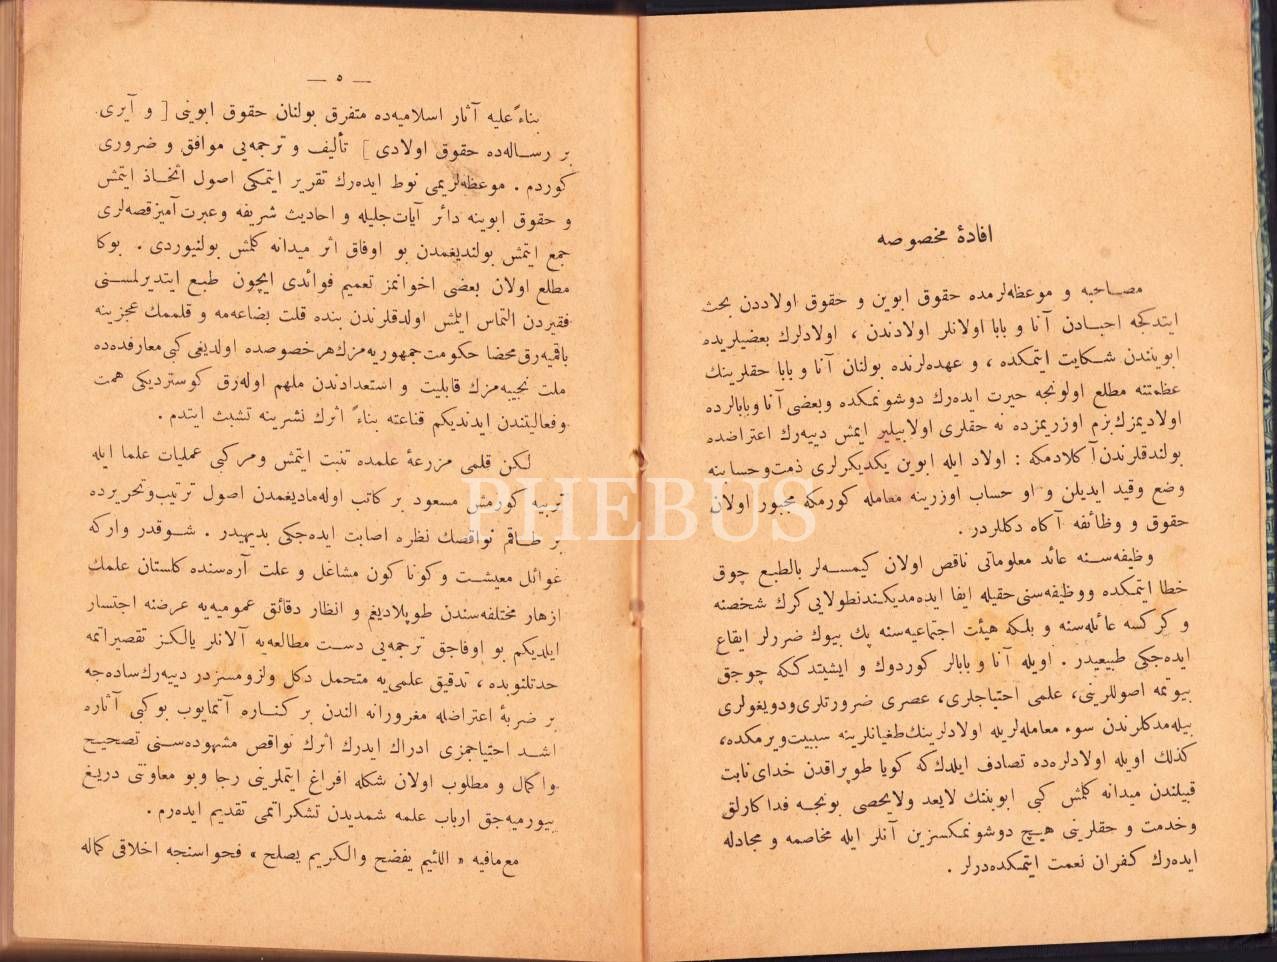 افادهٔ مخصوصه
مصاحبه و موعظه‌لرمده حقوق ابوین و حقوق اولاددن بحث
ایتدکجه احبادن آنا و بابا اولانلر اولادندن ، اولادلرك بعضیلریده
ابویندن شکایت ایتمکده ، و عهده‌لرنده بولنان آنا و بابا حقلرینك
عظمتنه مطلع اولونجه حیرت ایده‌رك دوشونمکده وبعضی آنا وبابالرده
اولادیمزك بزم اوزریمزده نه حقلری اولابیلیر ایمش دییه‌رك اعتراضده
بولندقلرندن آکلادمکه : اولاد ایله ابوین یکدیکرلری ذمت وحسابنه
وضع وقید ایدیلن و او حساب اوزرینه معامله کورمکه مجبور اولان
حقوق و وظائفه آکاه دکللردر .
وظیفه‌سنه عائد معلوماتی ناقص اولان کیمسه‌لر بالطبع چوق
خطا ایتمکده ووظیفه‌سنی حقیله ایفا ایده‌مدیکندنطولایی کرك شخصنه
و کرکسه عائله‌سنه و بلکه هیئت اجتماعیه‌سنه پك بیوك ضررلر ایقاع
ایده‌جکی طبیعیدر . اویله آنا و بابالر کوردوك و ایشیتدکه چوجق
بیوتمه اصوللرینی، علمی احتیاجلری، عصری ضرورتلری ودویغولری
بیله‌مدکلرندن سوء معامله‌لریله اولادلرینك طغیانلرینه سببیت ویرمکده،
کذلك اویله اولادلره‌ده تصادف ایلدك که کویا طوپراقدن خدای نابت
قبیلندن میدانه کلمش کبی ابویننك لایعد ولایحصی بونجه فداکارلق
وخدمت و حقلرینی هیچ دوشونمکسزین آنلر ایله مخاصمه و مجادله
ایده‌رك کفران نعمت ایتمکده‌درلر .
— ٥ —
بناءً علیه آثار اسلامیه‌ده متفرق بولنان حقوق ابوینی [ و آیری
بر رساله‌ده حقوق اولادی ] تألیف و ترجمه‌یی موافق و ضروری
کوردم . موعظه‌لریمی نوط ایده‌رك تقریر ایتمکی اصول اتخاذ ایتمش
و حقوق ابوینه دائر آیات جلیله و احادیث شریفه وعبرت آمیز قصه‌لری
جمع ایتمش بولندیغمدن بو اوفاق اثر میدانه کلمش بولنیوردی . بوکا
مطلع اولان بعضی اخوانمز تعمیم فوائدی ایچون طبع ایتدیرلمسنی
فقیردن التماس ایلمش اولدقلرندن بنده قلت بضاعه‌مه و قلممك عجزینه
باقمیه‌رق محضا حکومت جمهوریه‌مزك هر خصوصده اولدیغی کبی معارفده‌ده
ملت نجیبه‌مزك قابلیت و استعدادندن ملهم اوله‌رق کوستردیکی همت
وفعالیتندن ایدندیکم قناعته بناءً اثرك نشرینه تشبث ایتدم .
لکن قلمی مزرعهٔ علمده تنبت ایتمش ومرکبی عملیات علما ایله
تربیه کورمش مسعود بر کاتب اوله‌مادیغمدن اصول ترتیب وتحریرده
بر طاقم نواقصك نظره اصابت ایده‌جکی بدیهیدر . شو قدر وارکه
غوائل معیشت و کونا کون مشاغل و علت آره‌سنده کلستان علمك
ازهار مختلفه‌سندن طوپلادیغم و انظار دقائق عمومیه‌یه عرضنه اجتسار
ایلدیکم بو اوفاجق ترجمه‌یی دست مطالعه‌یه آلانلر یالکز تقصیراتمه
حدتلنوبده ، تدقیق علمی‌یه متحمل دکل ولزومسزدر دییه‌رك ساده‌جه
بر ضربهٔ اعتراضله مغرورانه الندن بر کناره آتمایوب بوکبی آثاره
اشد احتیاجمزی ادراك ایدرك اثرك نواقص مشهوده‌سنی تصحیح
واکمال و مطلوب اولان شکله افراغ ایتملرینی رجا وبو معاونتی دریغ
بیورمیه‌جق ارباب علمه شمدیدن تشکراتمی تقدیم ایده‌رم .
مع‌مافیه « اللئیم یفضح والکریم یصلح » فحواسنجه اخلاقی کماله
PHEBUS